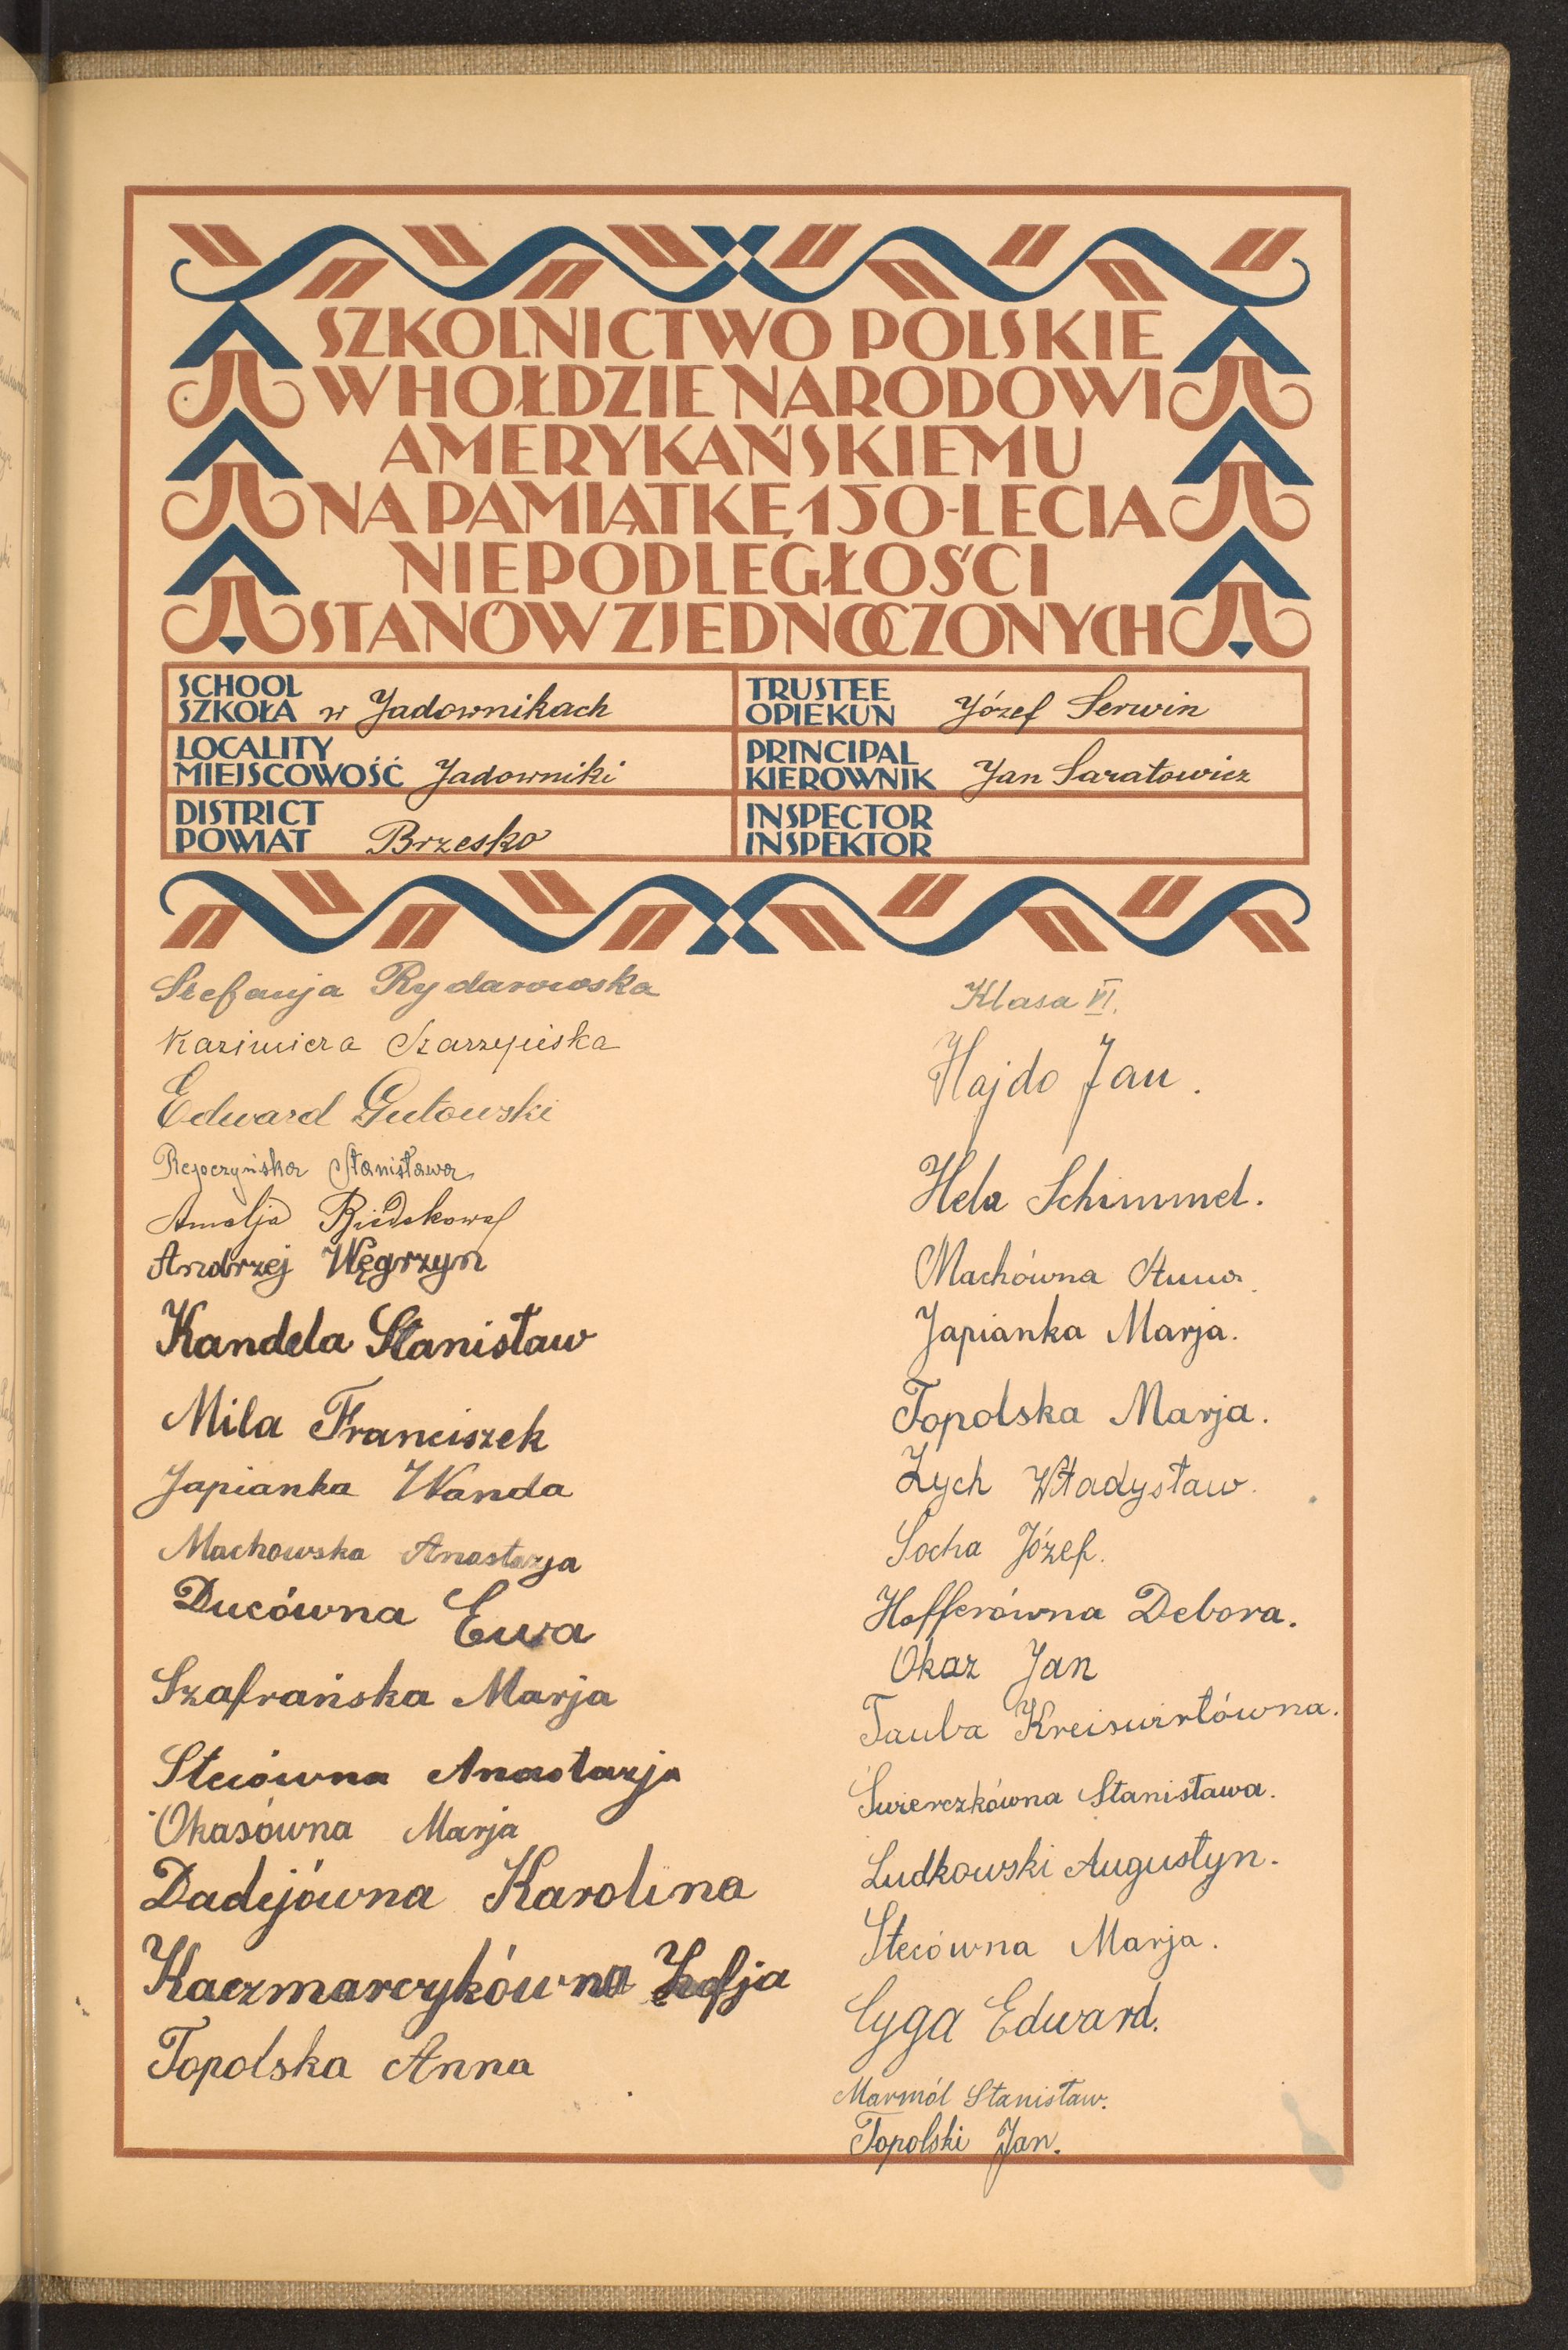 SZKOLNICTWO POLSKIE
W HOŁDZIE NARODOWI
AMERYKAŃSKIEMU
NA PAMIĄTKĘ 150-LECIA
NIEPODLEGŁOŚCI
STANÓW ZJEDNOCZONYCH
SCHOOL
SZKOŁA w Jadownikach
TRUSTEE
OPIEKUN Józef Serwin
LOCALITY
MIEJSCOWOŚĆ Jadowniki
PRINCIPAL
KIEROWNIK Jan Saratowicz
DISTRICT
POWIAT Brzesko
INSPECTOR
INSPEKTOR
Stefanja Rydarowska
Kazimiera Szarzyńska
Edward Gutowski
Stanisława
Amalja
Andrzej Węgrzyn
Kandela Stanisław
Mila Franciszek
Japianka Wanda
Machowska Anastazja
Ducówna Ewa
Szafrańska Marja
Stecówna Anastazja
Okasówna Marja
Dadejówna Karolina
Kaczmarczykówna Zofja
Topolska Anna
Klasa VI.
Hajdo Jan.
Hela Schimmel.
Machówna Anna.
Japianka Marja.
Topolska Marja.
Zych Władysław.
Socha Józef.
Hofferówna Debora.
Okaz Jan
Tauba Kreiswirtówna.
Świerczkówna Stanisława.
Ludkowski Augustyn.
Stecówna Marja.
Cyga Edward.
Marmól Stanisław.
Topolski Jan.